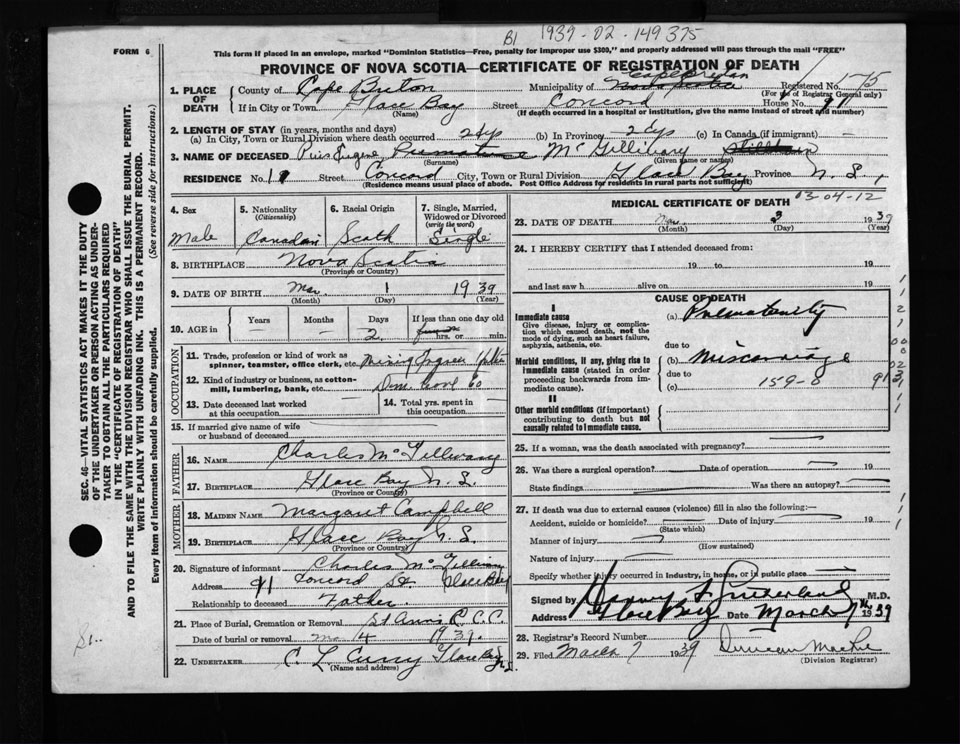 B1 1939-02-149375
FORM 6
This form if placed in an envelope, marked "Dominion Statistics—Free, penalty for improper use $300," and properly addressed will pass through the mail "FREE"
PROVINCE OF NOVA SCOTIA—CERTIFICATE OF REGISTRATION OF DEATH
1. PLACE OF DEATH
County of Cape Breton
Municipality of Cape Breton
Registered No. 175
(For use of Registrar General only)
If in City or Town Glace Bay (Name) Street Concord House No. 91
(If death occurred in a hospital or institution, give the name instead of street and number)
2. LENGTH OF STAY (in years, months and days)
(a) In City, Town or Rural Division where death occurred 2 dys (b) In Province 2 dys (c) In Canada (if immigrant) —
3. NAME OF DECEASED Pius Eugene McGillivary
(Surname) (Given name or names)
RESIDENCE No. Street Concord City, Town or Rural Division Glace Bay Province N.S.
(Residence means usual place of abode. Post Office Address for residents in rural parts not sufficient)
4. Sex
Male
5. Nationality (Citizenship)
Canadian
6. Racial Origin
Scotch
7. Single, Married, Widowed or Divorced (write the word)
Single
8. BIRTHPLACE Nova Scotia
(Province or Country)
9. DATE OF BIRTH Mar. 1 1939
(Month) (Day) (Year)
10. AGE in Years Months Days If less than one day old
— — 2 hrs. or min.
OCCUPATION
11. Trade, profession or kind of work as spinner, teamster, office clerk, etc.
12. Kind of industry or business, as cotton-mill, lumbering, bank, etc.
13. Date deceased last worked at this occupation
14. Total yrs. spent in this occupation
15. If married give name of wife or husband of deceased
FATHER
16. NAME Charles McGillivary
17. BIRTHPLACE Glace Bay N.S.
(Province or Country)
MOTHER
18. MAIDEN NAME Margaret Campbell
19. BIRTHPLACE Glace Bay N.S.
(Province or Country)
20. Signature of informant Charles McGillivary
Address 91 Concord St. Glace Bay
Relationship to deceased Father
21. Place of Burial, Cremation or Removal St Anns R.C.C.
Date of burial or removal Mar 4 1939.
22. UNDERTAKER C. L. Curry Glace Bay N.S.
(Name and address)
MEDICAL CERTIFICATE OF DEATH
03-04-12
23. DATE OF DEATH Mar 3 1939
(Month) (Day) (Year)
24. I HEREBY CERTIFY that I attended deceased from:
19 to 19
and last saw h alive on 19
CAUSE OF DEATH
I
Immediate cause
Give disease, injury or complication which caused death, not the mode of dying, such as heart failure, asphyxia, asthenia, etc.
(a) Prematurity
due to
Morbid conditions, if any, giving rise to immediate cause (stated in order proceeding backwards from immediate cause).
(b) Miscarriage
due to
(c) 159-0
II
Other morbid conditions (if important) contributing to death but not causally related to immediate cause.
25. If a woman, was the death associated with pregnancy?
26. Was there a surgical operation? Date of operation 19
State findings Was there an autopsy?
27. If death was due to external causes (violence) fill in also the following:—
Accident, suicide or homicide? Date of injury 19
(State which)
Manner of injury
(How sustained)
Nature of injury
Specify whether injury occurred in industry, in home, or in public place
Signed by Sutherland M.D.
Address Glace Bay Date March 7 1939
28. Registrar's Record Number
29. Filed March 7 1939 Duncan
(Division Registrar)
SEC. 46—VITAL STATISTICS ACT MAKES IT THE DUTY
OF THE UNDERTAKER OR PERSON ACTING AS UNDER-
TAKER TO OBTAIN ALL THE PARTICULARS REQUIRED
IN THE "CERTIFICATE OF REGISTRATION OF DEATH"
AND TO FILE THE SAME WITH THE DIVISION REGISTRAR WHO SHALL ISSUE THE BURIAL PERMIT.
WRITE PLAINLY WITH UNFADING INK. THIS IS A PERMANENT RECORD.
Every item of information should be carefully supplied. (See reverse side for instructions.)